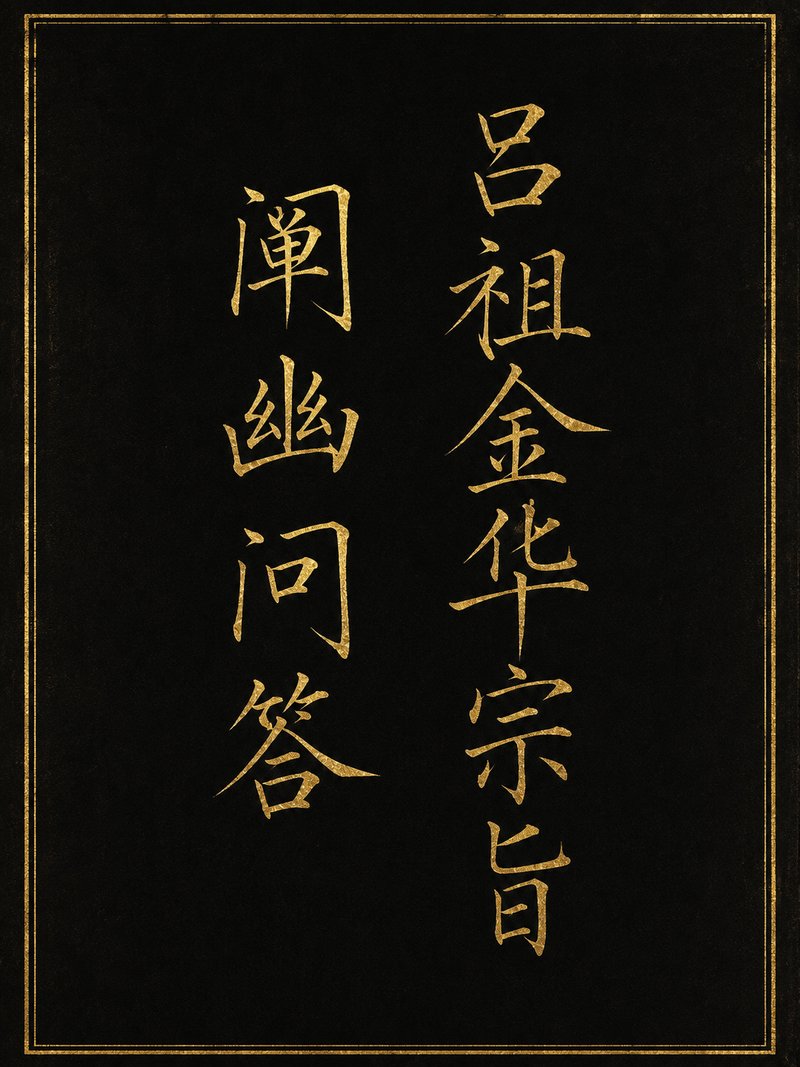 吕祖金华宗旨
阐幽问答